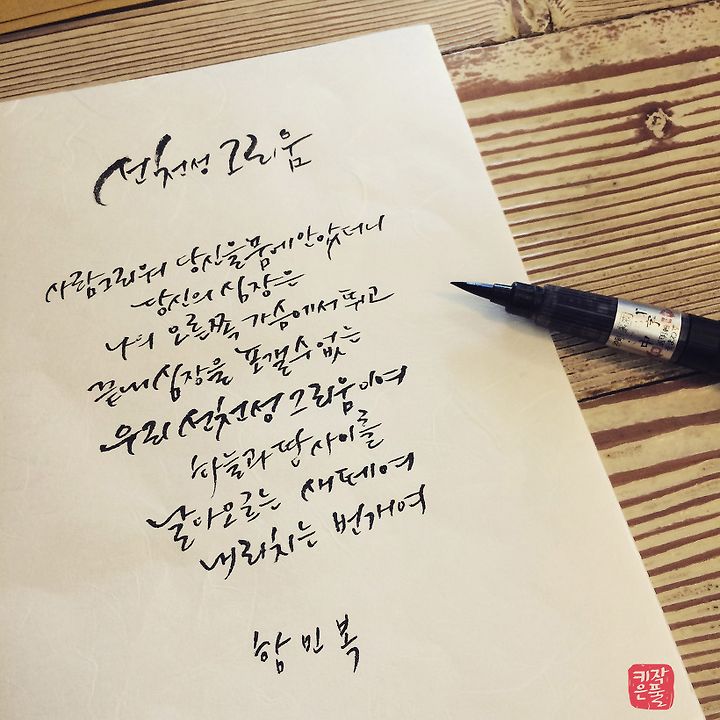 선천성 그리움
사람 그리워 당신을 품에 안았더니
당신의 심장은
나의 오른쪽 가슴에서 뛰고
끝내 심장을 포갤 수 없는
우리 선천성 그리움이여
하늘과 땅 사이를
날아오르는 새떼여
내리치는 번개여
함민복
키작은풀